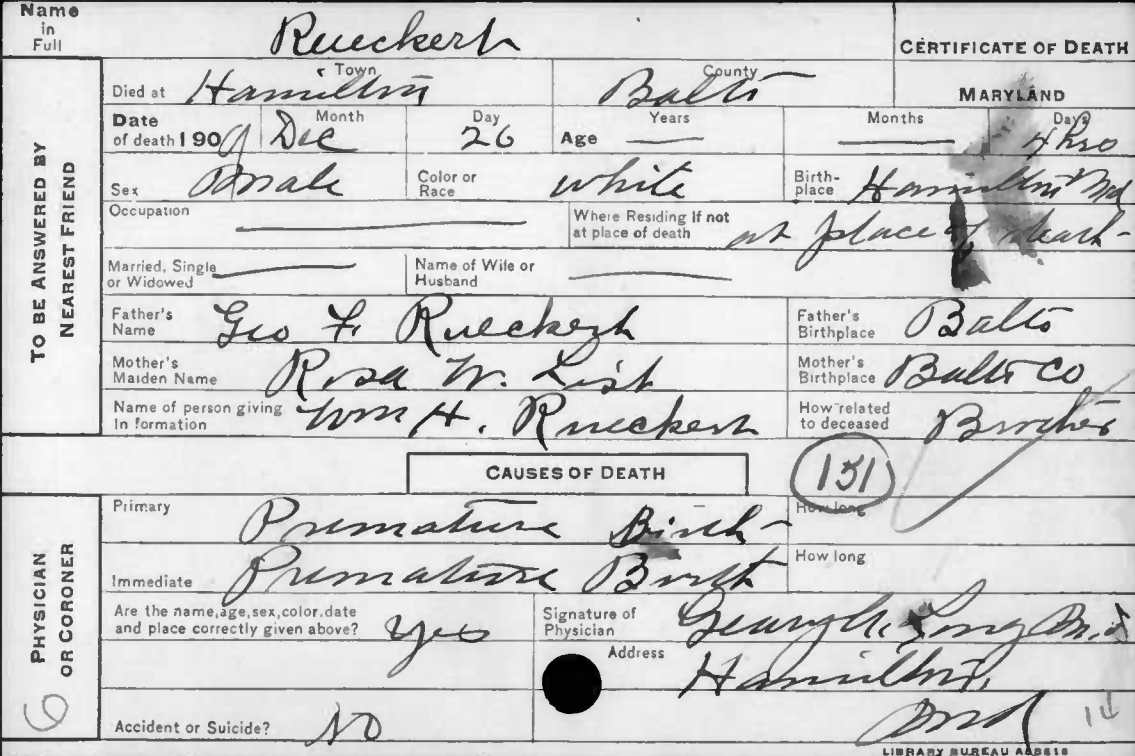 Name in Full Rueckert
CERTIFICATE OF DEATH
TO BE ANSWERED BY NEAREST FRIEND
Died at Hamilton Town Balto County MARYLAND
Date of death 1909 Month Dec Day 26 Age Years — Months — Days 4 hrs
Sex Male Color or Race white Birth-place Hamilton Md
Occupation — Where Residing If not at place of death at place of death
Married, Single or Widowed — Name of Wife or Husband —
Father's Name Geo F. Rueckert Father's Birthplace Balto
Mother's Maiden Name Rosa W. List Mother's Birthplace Balto Co
Name of person giving In formation Wm H. Rueckert How related to deceased Brother
CAUSES OF DEATH 151
PHYSICIAN OR CORONER
Primary Premature Birth How long
Immediate Premature Birth How long
Are the name, age, sex, color, date and place correctly given above? yes Signature of Physician Long M.D
Address Hamilton,
Accident or Suicide? No Md
6
LIBRARY BUREAU